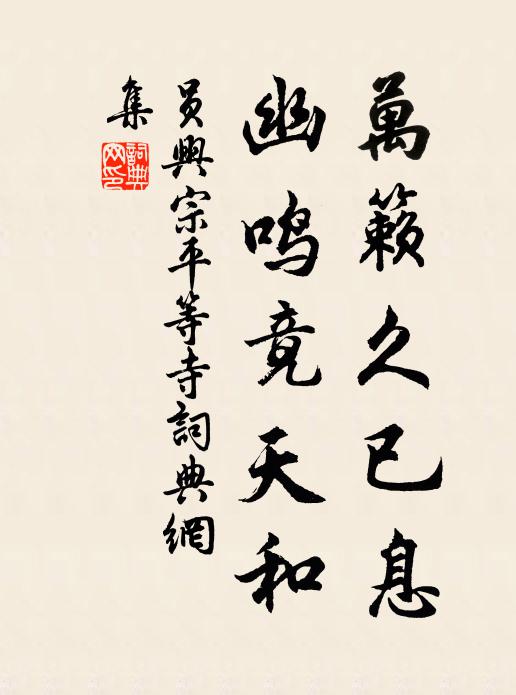 萬籟久已息
幽鸣竟天和
員興宗平等寺詞典網
集
詞典
网印